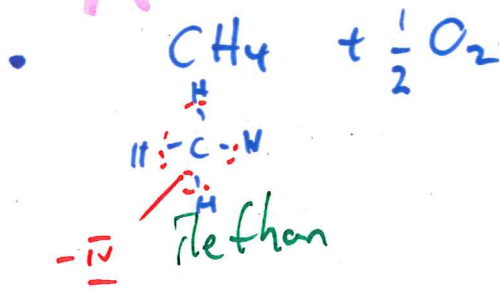 • CH₄ + ½ O₂
H
H - C - H
H
- IV
Methan